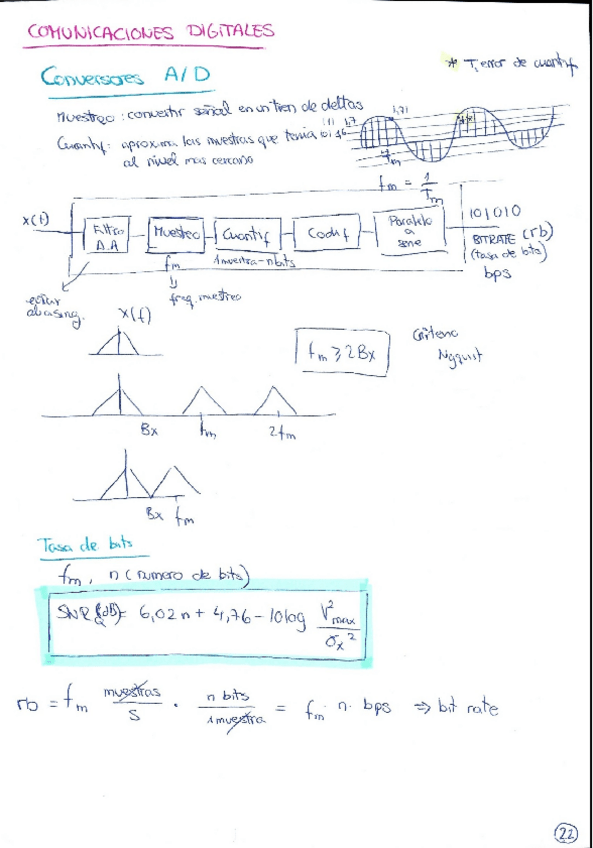 COMUNICACIONES DIGITALES
* T, error de cuantif
Conversores A/D
Muestreo: convertir señal en un tren de deltas
Cuantif: aproxima las muestras que tenía
al nivel mas cercano
1,71
Tm
fm = 1/Tm
x(t)
Filtro A.A
Muestreo
Cuantif
Codif
Paralelo a serie
101010
BITRATE (rb)
(tasa de bits)
bps
1 muestra - n bits
fm
freq. muestreo
evitar
aliasing.
X(f)
fm ≥ 2Bx
Criterio
Nyquist
Bx fm 2fm
Bx fm
Tasa de bits
fm, n (numero de bits)
SNRQ(dB) = 6,02n + 4,76 - 10log V²max/σx²
rb = fm muestras/s · n bits/1 muestra = fm · n · bps ⇒ bit rate
22